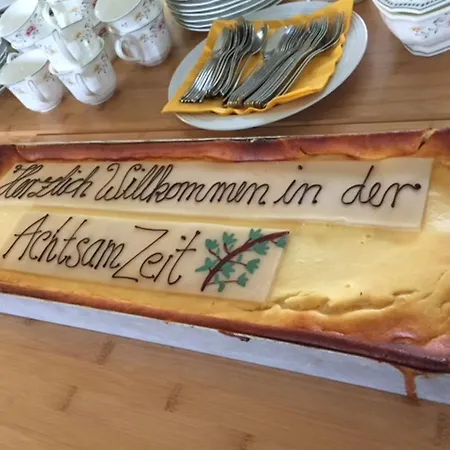 Herzlich Willkommen in der
Achtsam Zeit